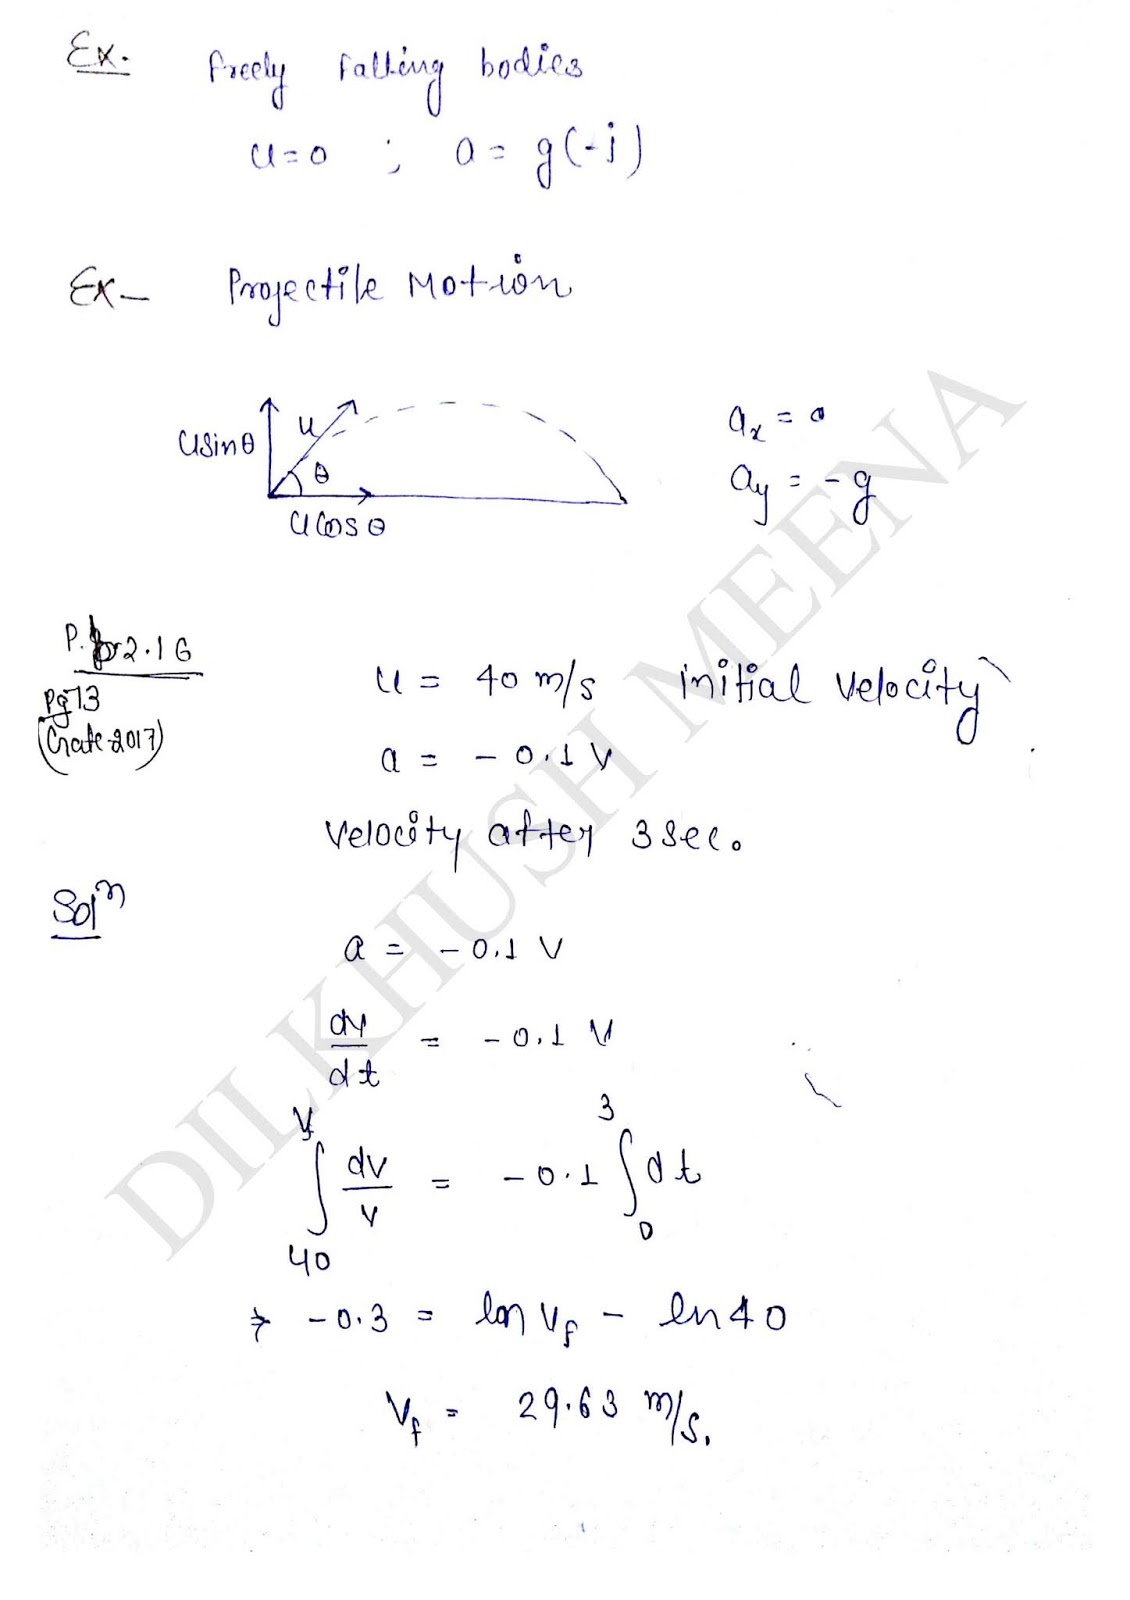 Ex. freely falling bodies
u=0 ; a = g(-j)
Ex- Projectile Motion
usinθ u θ
ucosθ
ax = 0
ay = -g
P. 2.16
Pg 73
(Gate-2017)
u = 40 m/s initial velocity
a = - 0.1 V
velocity after 3 sec.
Solⁿ
a = - 0.1 V
dv/dt = - 0.1 V
∫_40^Vf dv/v = - 0.1 ∫_0^3 dt
⇒ -0.3 = ln Vf - ln 40
Vf = 29.63 m/s.
DILKHUSH MEENA